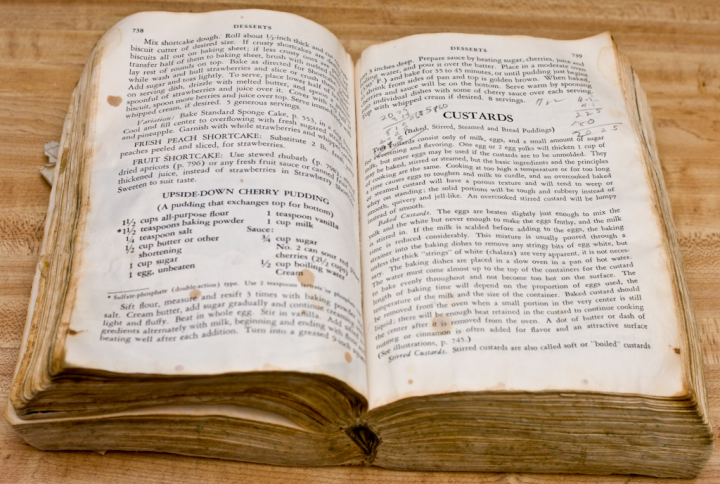 738
DESSERTS
Mix shortcake dough. Roll about ½-inch thick and cut
biscuit cutter of desired size. If crusty shortcakes are
biscuits all out on baking sheet; if less crusty ones are
transfer half of them to baking sheet, brush with melted
lay rest of rounds on top. Bake as directed for Short
while wash and hull strawberries and slice or crush
Add sugar and toss lightly. To serve, place lower half of
on serving dish, drizzle with melted butter, and spoon
spoonful of strawberries and juice over it. Cover with
biscuit, spoon more berries and juice over top. Serve
whipped cream, if desired. 5 generous servings.
Variation: Bake Standard Sponge Cake, p. 353, in
Cool and fill center to overflowing with fresh sugared
and pineapple. Garnish with whole strawberries and
FRESH PEACH SHORTCAKE: Substitute 2 lb.
peaches peeled and sliced, for strawberries.
FRUIT SHORTCAKE: Use stewed rhubarb (p.
dried apricots (p. 796) or any fresh fruit sauce or canned
thickened juice, instead of strawberries in Strawberry
Sweeten to suit taste.
UPSIDE-DOWN CHERRY PUDDING
(A pudding that exchanges top for bottom)
1½ cups all-purpose flour
*1½ teaspoons baking powder
¼ teaspoon salt
½ cup butter or other
shortening
1 cup sugar
1 egg, unbeaten
1 teaspoon vanilla
1 cup milk
Sauce:
¾ cup sugar
No. 2 can sour red
cherries (2½ cups)
½ cup boiling water
Cream
* Sulfate-phosphate (double-action) type. Use 2 teaspoons
Sift flour, measure and resift 3 times with baking powder
salt. Cream butter, add sugar gradually and continue creaming
light and fluffy. Beat in whole egg. Stir in vanilla. Add
gredients alternately with milk, beginning and ending with flour
beating well after each addition. Turn into a greased
DESSERTS
739
inches deep. Prepare sauce by heating sugar, cherries, juice and
boiling water, and pour it over the batter. Place in a moderate oven
F.) and bake for 35 to 45 minutes, or until pudding just begins
shrink from sides of pan and top is golden brown. When baked,
and sauce will be on the bottom. Serve warm by spooning
individual dishes with some of cherry sauce over each serving.
with whipped cream if desired. 8 servings.
CUSTARDS
(Baked, Stirred, Steamed and Bread Puddings)
True custards consist only of milk, eggs, and a small amount of sugar
for sweetening and flavoring. One egg or 2 egg yolks will thicken 1 cup of
milk, but more eggs may be used if the custards are to be unmolded. They
may be baked, stirred or steamed, but the basic ingredients and the principles
of cooking are the same. Cooking at too high a temperature or for too long
a time causes eggs to toughen and milk to curdle, and an overcooked baked
or steamed custard will have a porous texture and will tend to weep or
whey on standing; the solid portions will be tough and rubbery instead of
smooth, quivery and jell-like. An overcooked stirred custard will be lumpy
instead of smooth.
Baked Custards. The eggs are beaten slightly just enough to mix the
yolk and the white but never enough to make the eggs frothy, and the milk
is stirred in. If the milk is scalded before adding to the eggs, the baking
time is reduced considerably. This mixture is usually poured through a
strainer into the baking dishes to remove any stringy bits of egg white, but
unless the thick "strings" of white (chalaza) are very apparent, it is not neces-
sary. The baking dishes are placed in a slow oven in a pan of hot water.
The water must come almost up to the top of the containers for the custard
to bake evenly throughout and not become too hot on the surface. The
length of baking time will depend on the proportion of eggs used, the
temperature of the milk and the size of the container. Baked custard should
be removed from the oven when a small portion in the very center is still
liquid; there will be enough heat retained in the custard to continue cooking
the center after it is removed from the oven. A dot of butter or dash of
nutmeg or cinnamon is often added for flavor and an attractive surface
(See illustrations, p. 745.)
Stirred Custards. Stirred custards are also called soft or "boiled" custards